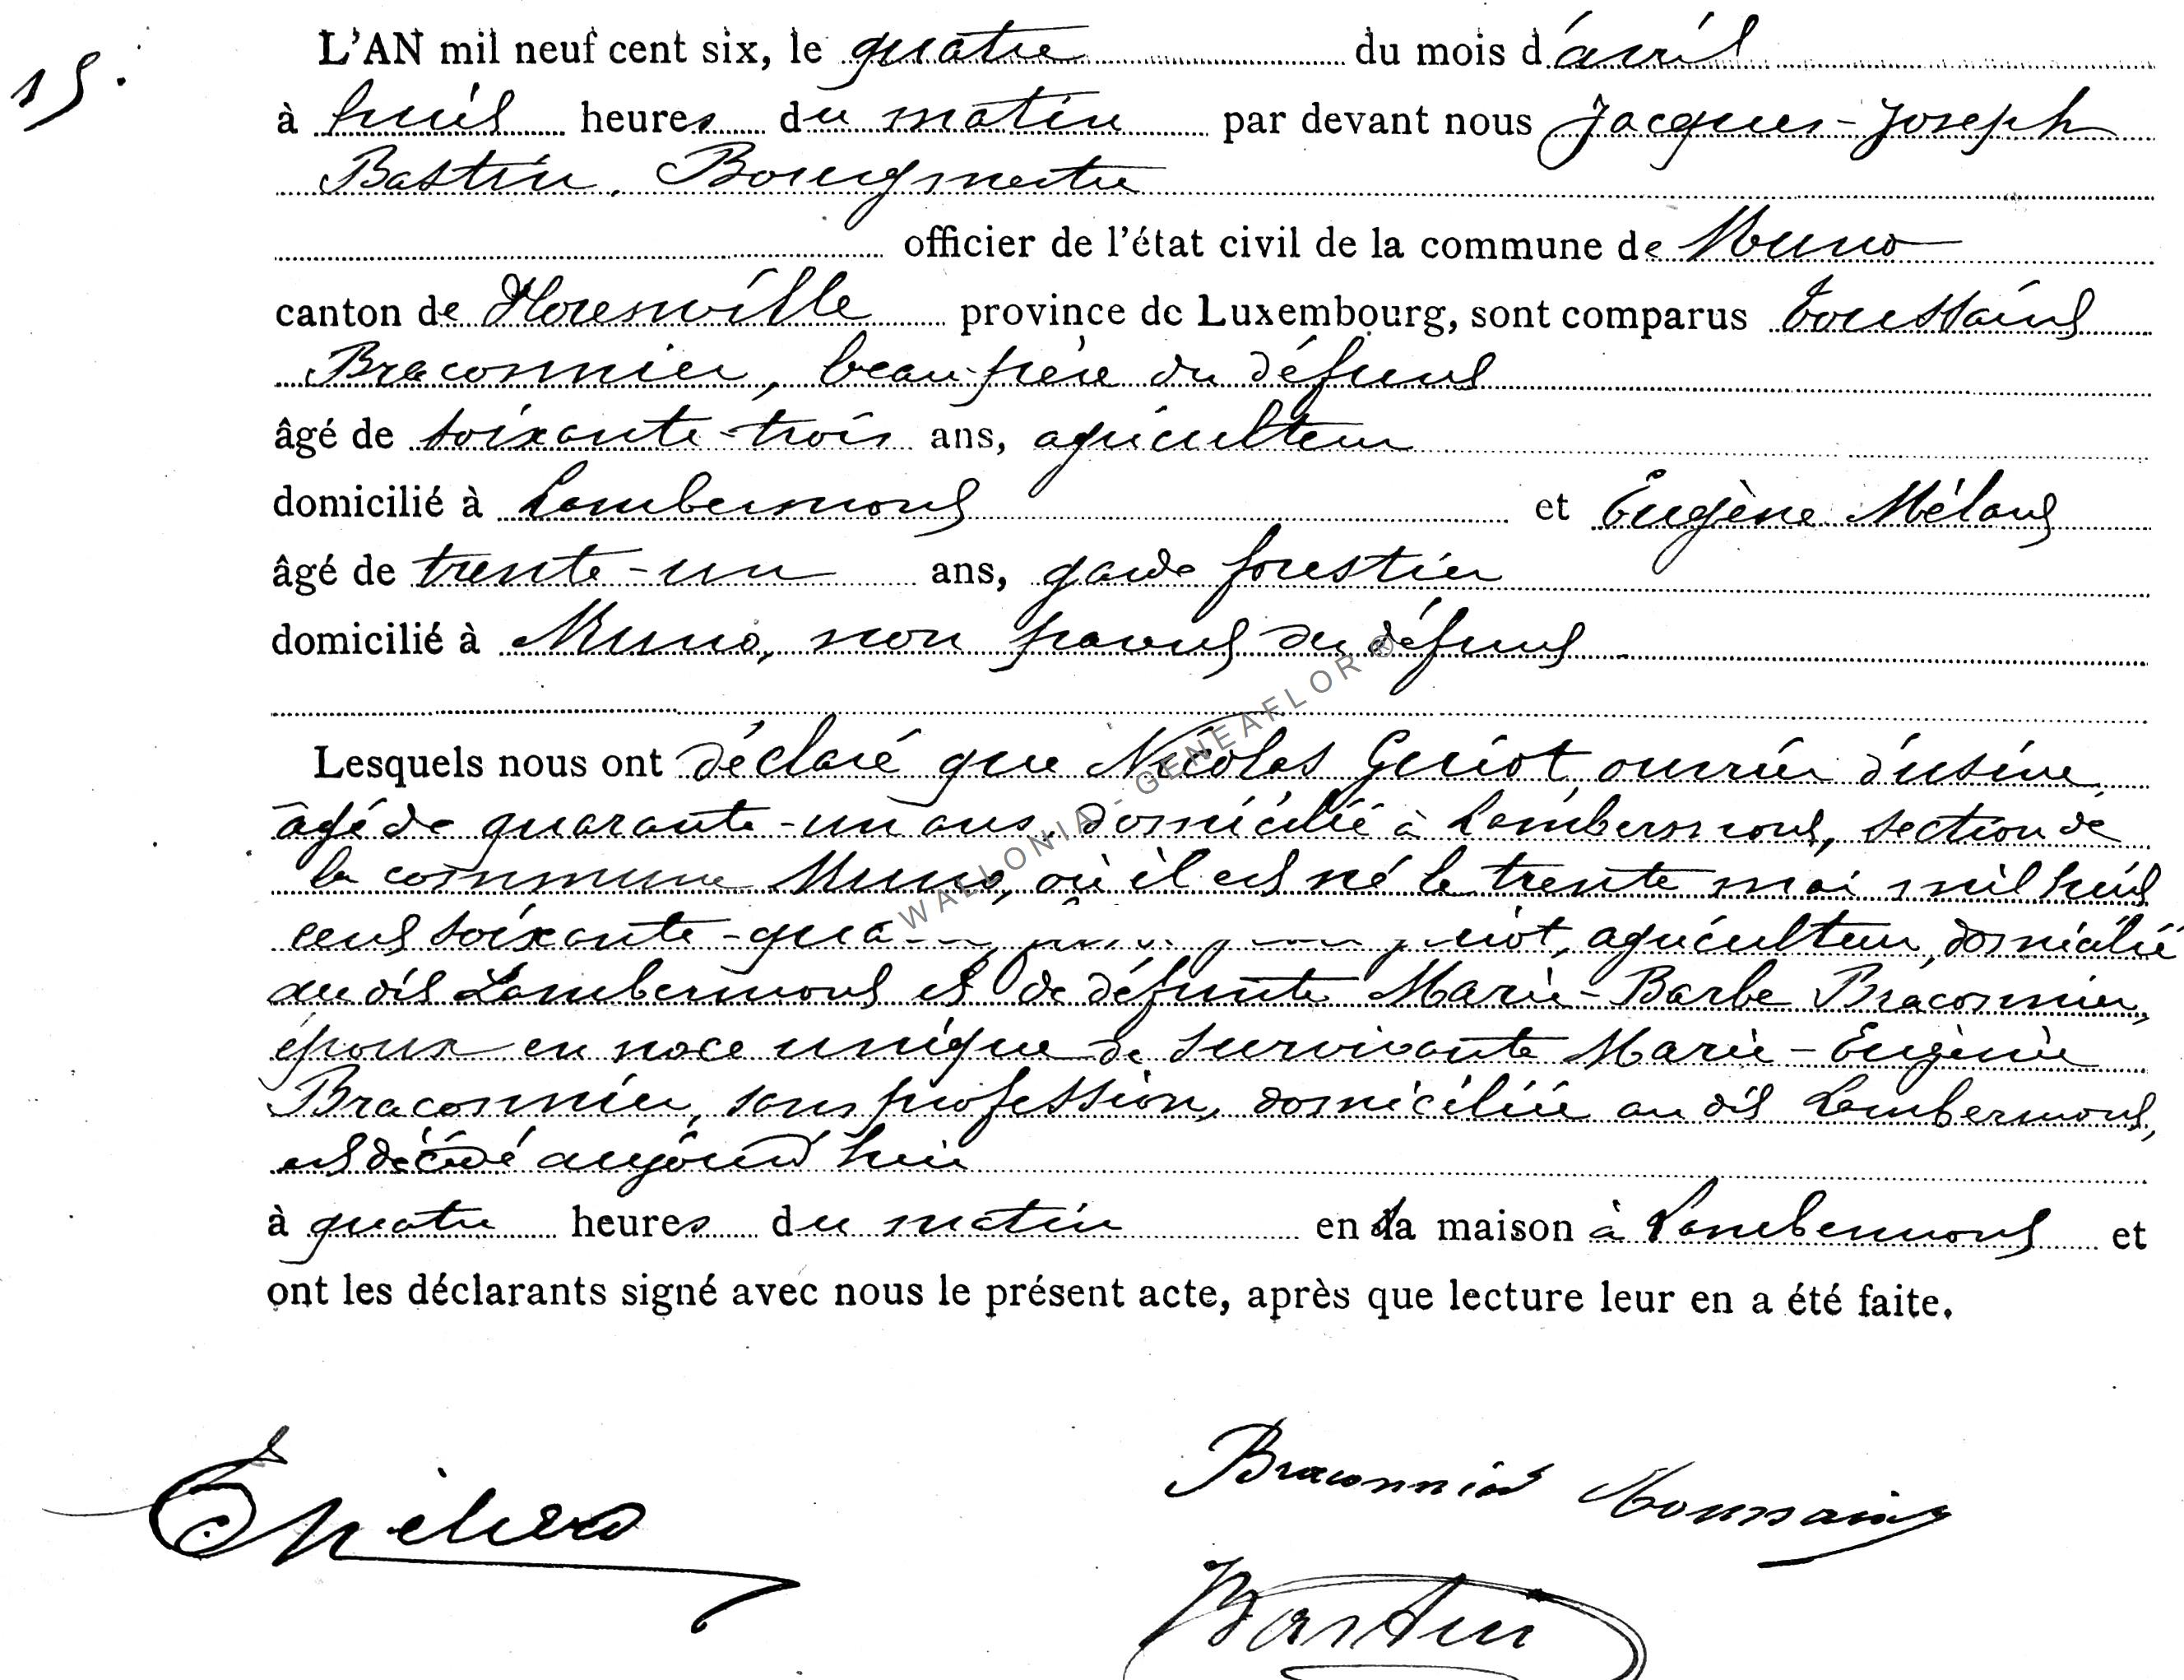 15.
L'AN mil neuf cent six, le quatre du mois d'avril
à huit heures du matin par devant nous Jacques-Joseph
Bastin, Bourgmestre
officier de l'état civil de la commune de Muno
canton de Florenville province de Luxembourg, sont comparus Toussaint
Braconnier, beau-frère du défunt
âgé de soixante-trois ans, agriculteur
domicilié à Lambermont et Eugène Mélard
âgé de trente-un ans, garde forestier
domicilié à Muno, non parent du défunt
Lesquels nous ont déclaré que Nicolas Guiot, ouvrier d'usine
âgé de quarante-un ans, domicilié à Lambermont, section de
la commune Muno, où il est né le trente mai mil huit
cent soixante-qua iot, agriculteur, domicilié
au dit Lambermont et de défunte Marie-Barbe Braconnier,
époux en noce unique de survivante Marie-Eugénie
Braconnier, sans profession, domiciliée au dit Lambermont,
est décédé aujourd'hui
à quatre heures du matin en sa maison à Lambermont et
ont les déclarants signé avec nous le présent acte, après que lecture leur en a été faite.
Braconnier Toussaint
Bastin
WALLONIA - GENEAFLOR ®